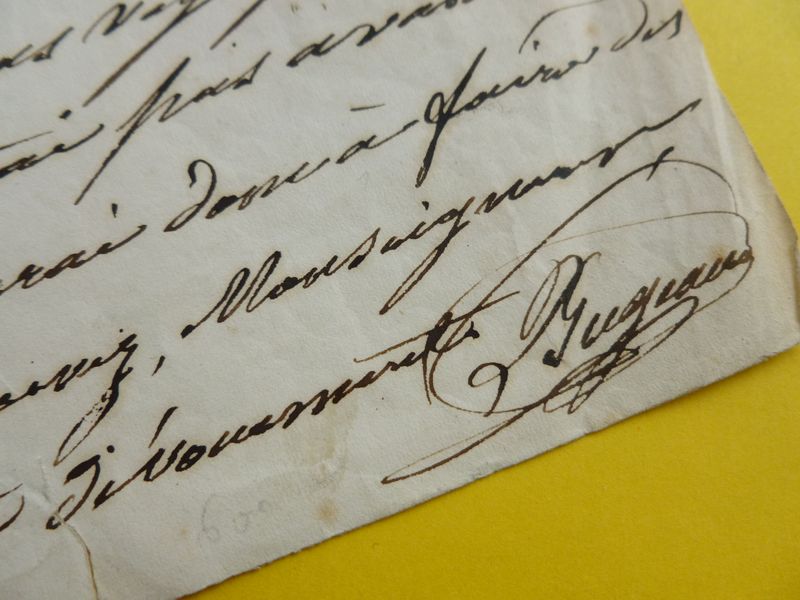 pas avan
rai donc à faire des
Monseigneur
dévouement Bugeaud
600